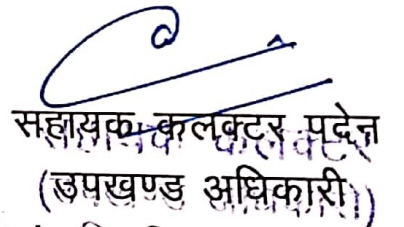 सहायक कलक्टर पदेन
(उपखण्ड अधिकारी)